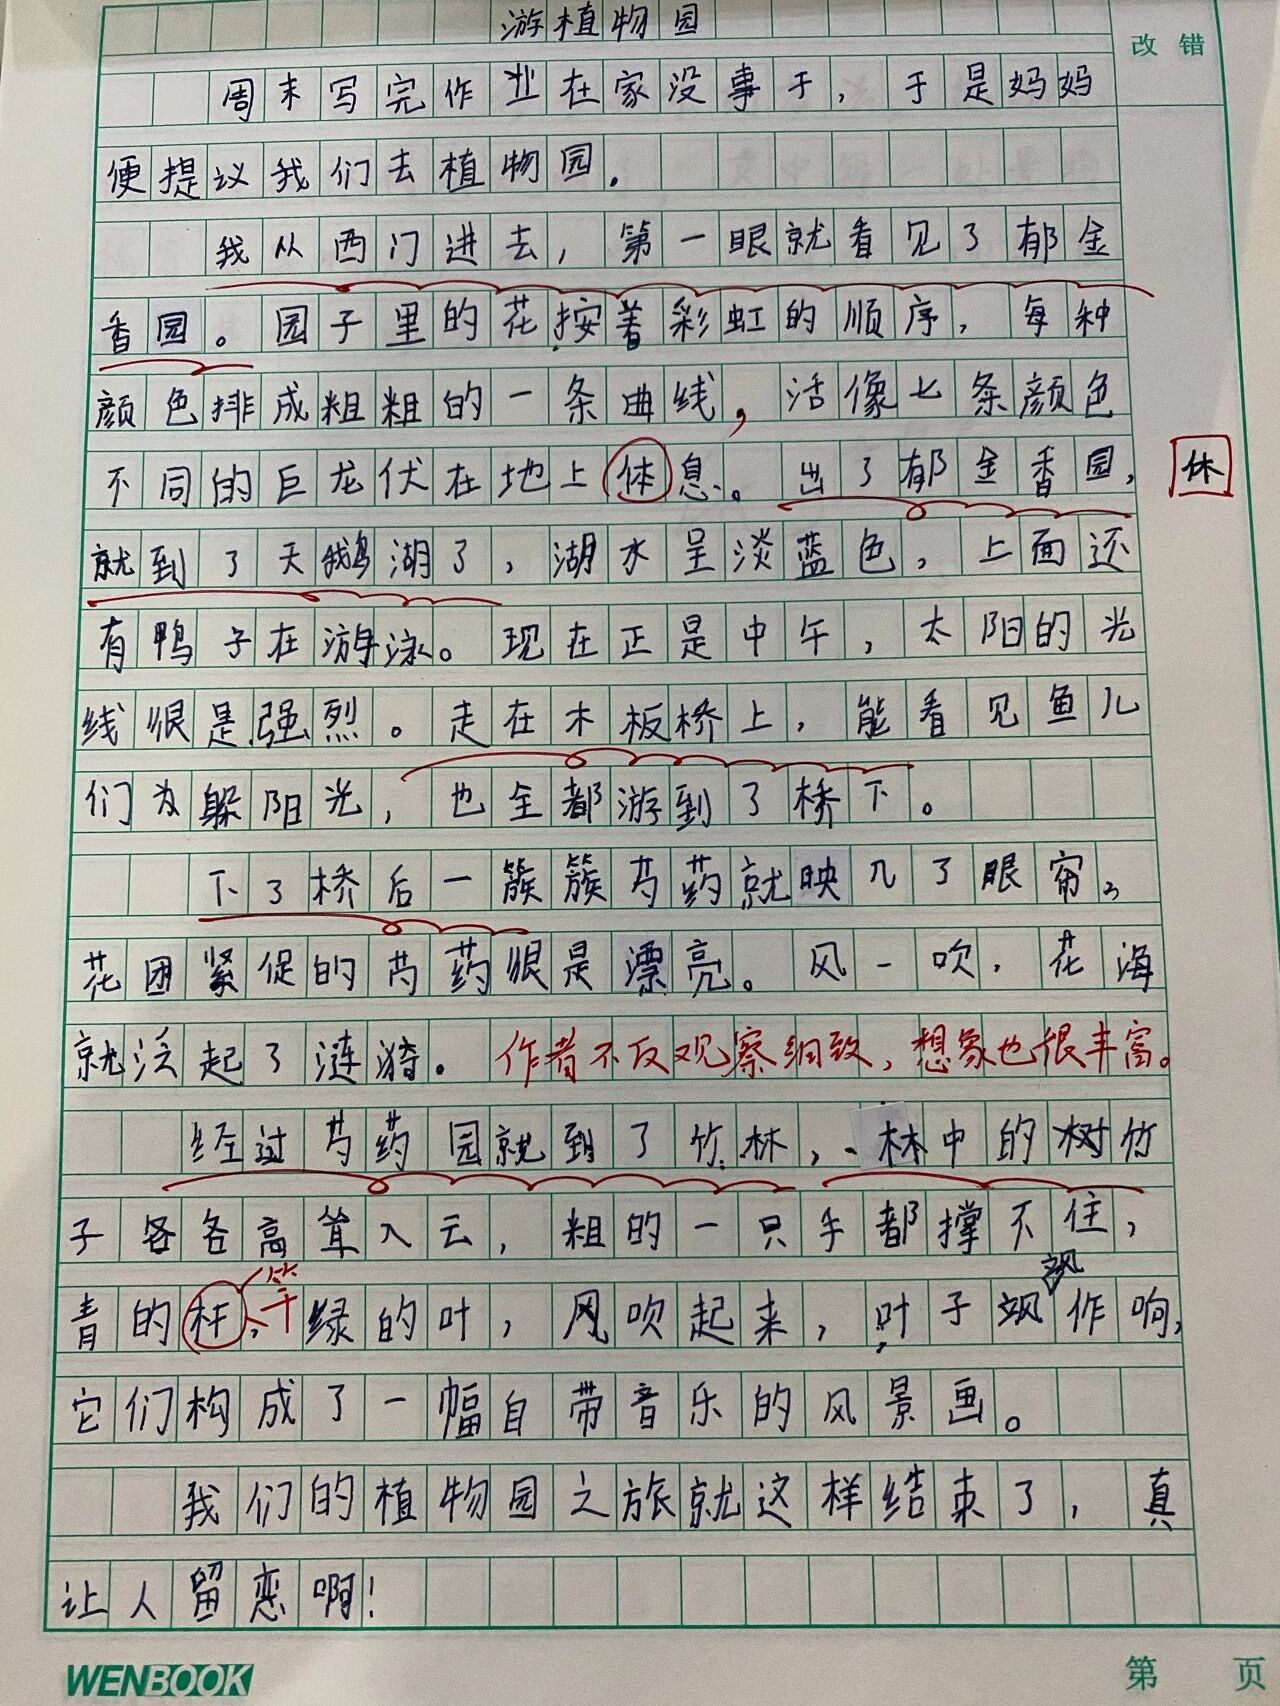 游植物园
改错
周末写完作业在家没事于，于是妈妈
便提议我们去植物园.
我从西门进去，第一眼就看见了郁金
香园。园子里的花按着彩虹的顺序，每种
颜色排成粗粗的一条曲线，活像七条颜色
不同的巨龙伏在地上体息。出了郁金香园，
休
就到了天鹅湖了，湖水呈淡蓝色，上面还
有鸭子在游泳。现在正是中午，太阳的光
线很是强烈。走在木板桥上，能看见鱼儿
们为躲阳光，也全都游到了桥下。
下了桥后一簇簇芍药就映几了眼帘，
花团紧促的芍药很是漂亮。风一吹，花海
就泛起了涟漪。作者不反观察细致，想象也很丰富。
经过芍药园就到了竹林，林中的树竹
子各各高耸入云，粗的一只手都撑不住，
青的杆，竿绿的叶，风吹起来，叶子飒飒作响，
它们构成了一幅自带音乐的风景画。
我们的植物园之旅就这样结束了，真
让人留恋啊！
WENBOOK
第 页